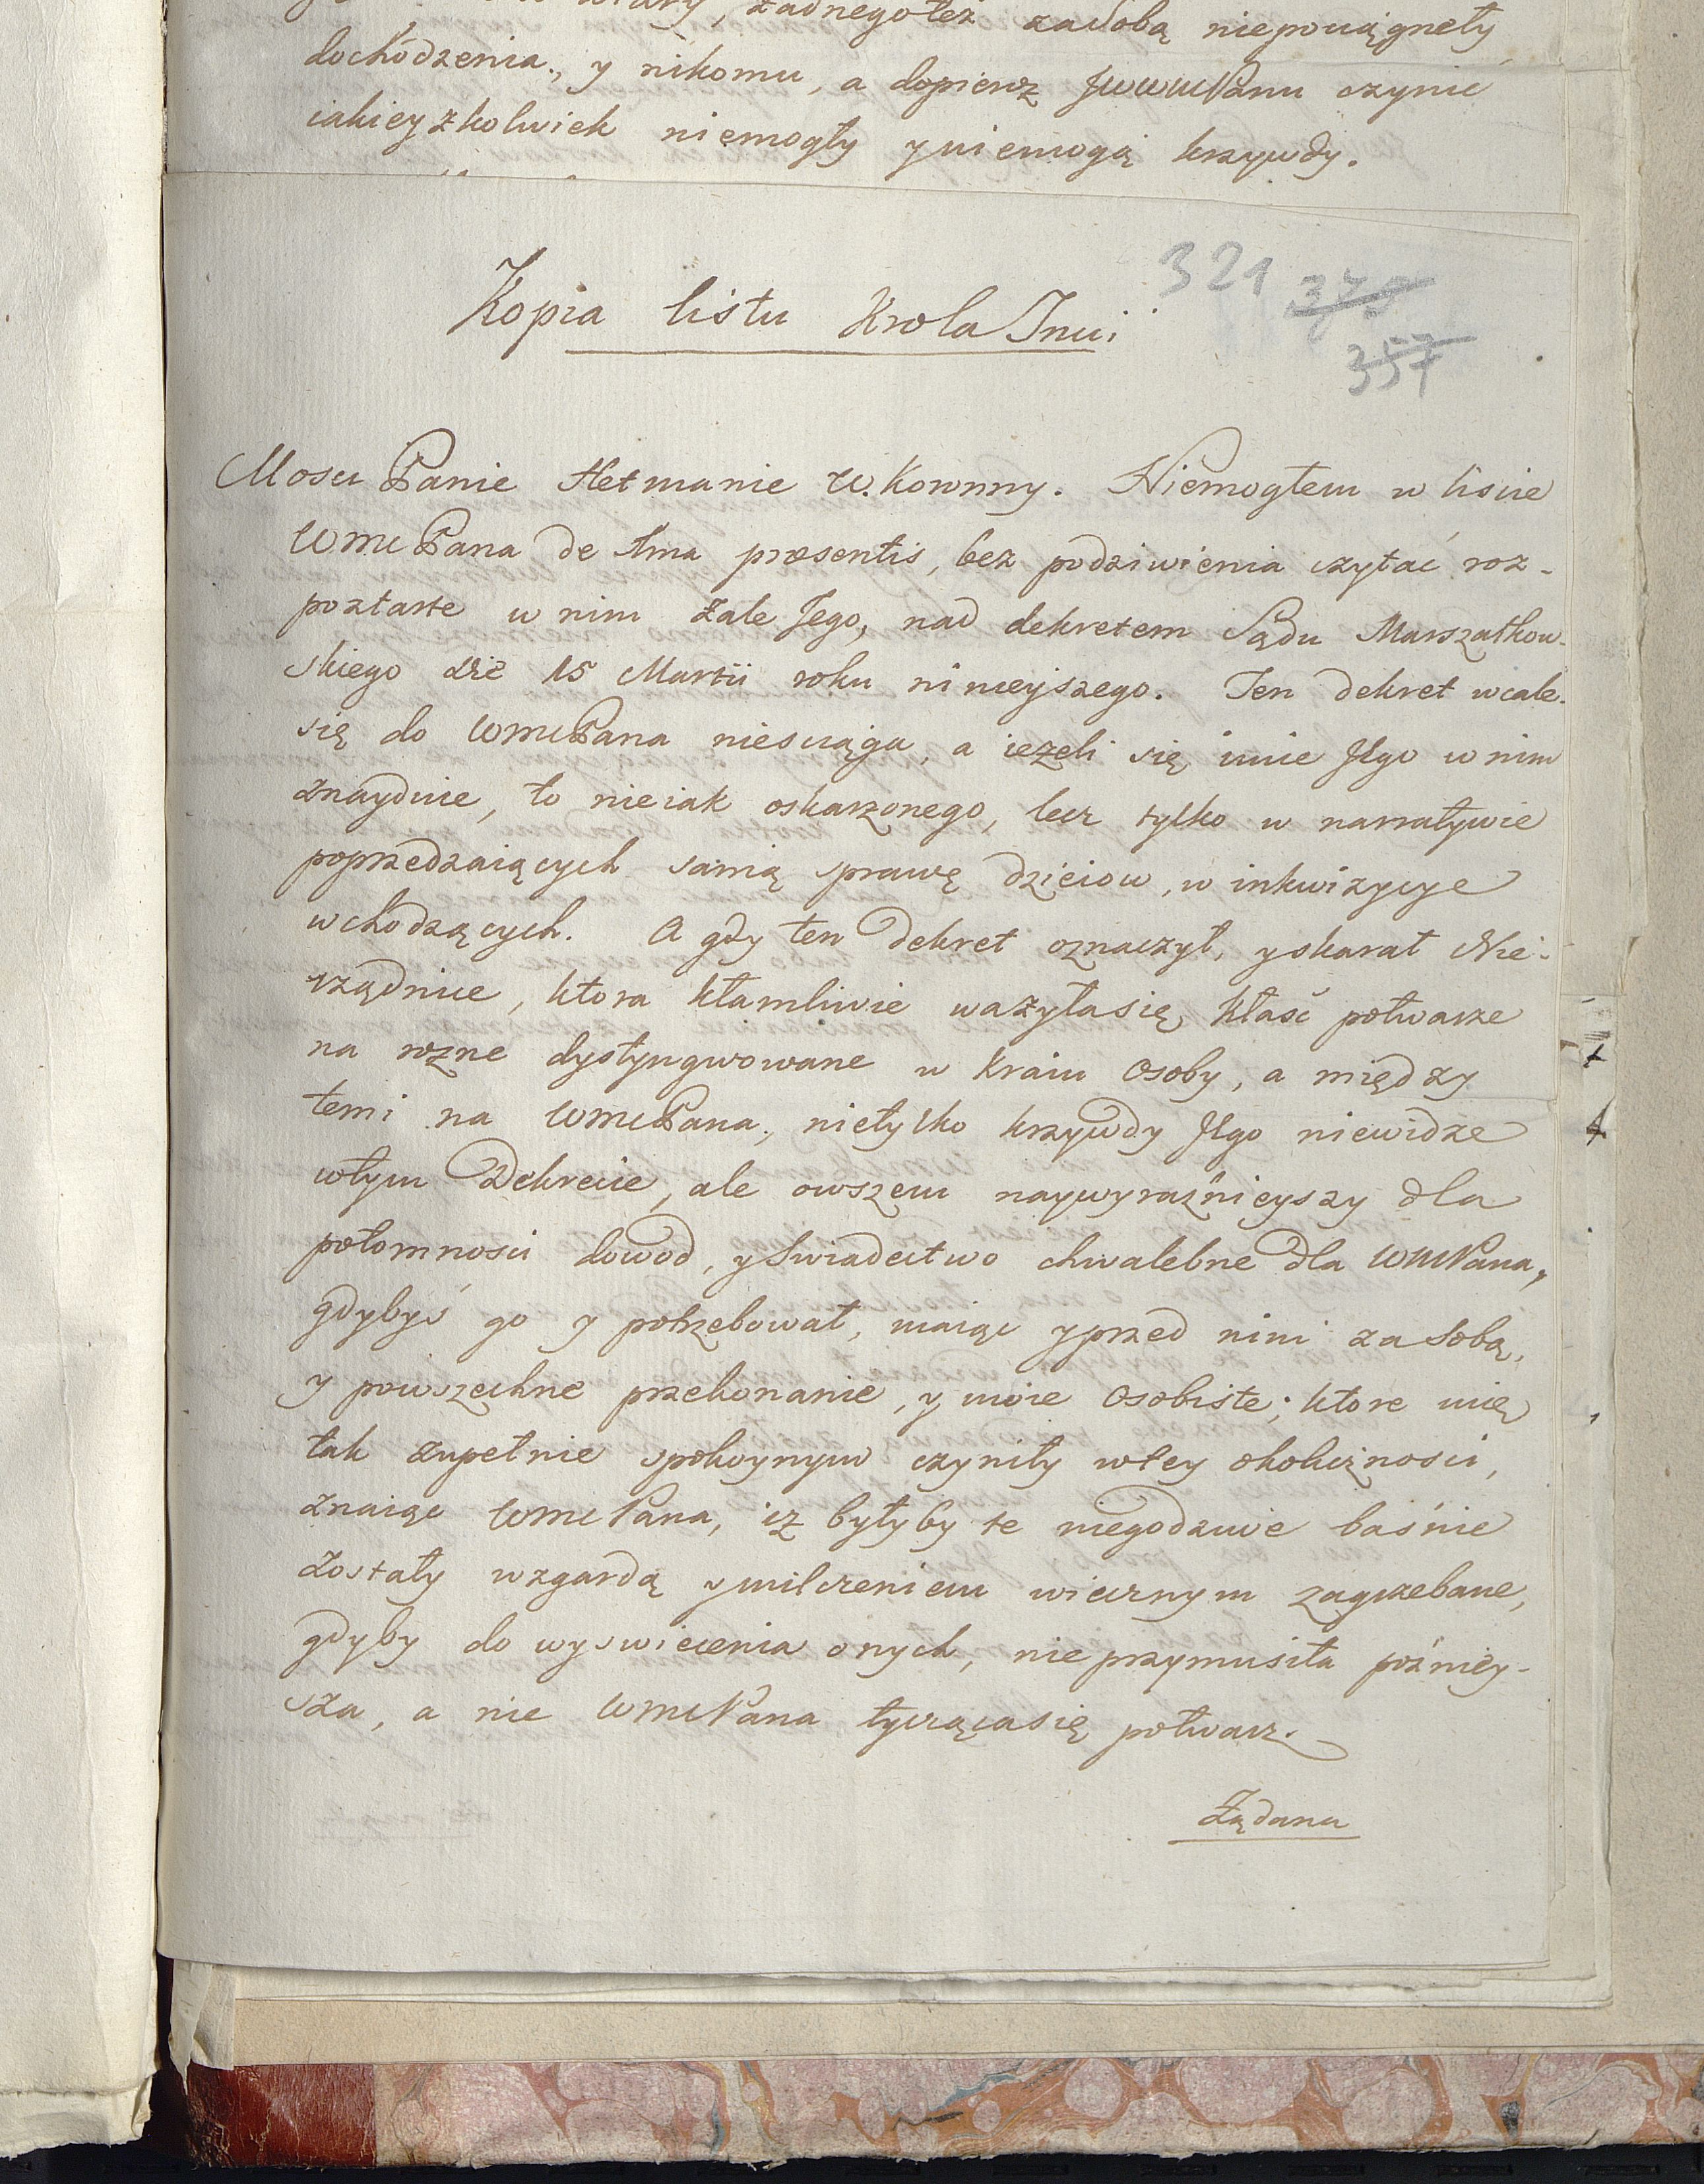 żadnegotéż zasobą niepociągnęły
dochodzenia, y nikomu, a dopieroz JWWMPanu czynić
iakieyzkolwiek niemogły y niemogą krzywdy.
321 357
Kopia listu Krola Jmci
Mosci Panie Hetmanie W. Koronny. Niemogłem w liscie
WmcPana de 1ma præsentis, bez podziwienia czytać roz-
postarte w nim żale Jego, nad dekretem Sądu Marszałkow-
skiego die 15 Martii roku ninieyszego. Ten dekret wcale
się do WmcPana niesciąga, a ieżeli się imie JEgo w nim
znayduie, to nie iak oskarzonego, lecz tylko w narratywie
poprzedzaiących samą sprawę dzieiow, w inkwizycye
wchodzących. A gdy ten Dekret oznaczył, y skarał Nie-
rządnice, ktora kłamliwie ważyłasię kłaść potwarze
na rożne dystyngwowane w Kraiu Osoby, a między
temi na WmcPana, nietylko krzywdy JEgo niewidze
wtym Dekrecie, ale owszem naywyraźnieyszy dla
potomnosci dowod, y Swiadectwo chwalebne dla WMPana,
gdybyś go y potrzebował, maiąc y przed nim za Sobą,
y powszechne przekonanie, y moie Osobiste; ktore mię
tak zupełnie spokoynym czyniły wtey okolicznosci,
znaiąc WmcPana, iż byłyby te niegodziwe baśnie
zostały wzgardą y milczeniem wiecznym zagrzebane,
gdyby do wyswiecenia onych, nie przymusiła pożniey-
sza, a nie WmcPana tycząca się potwarz.
Żądana